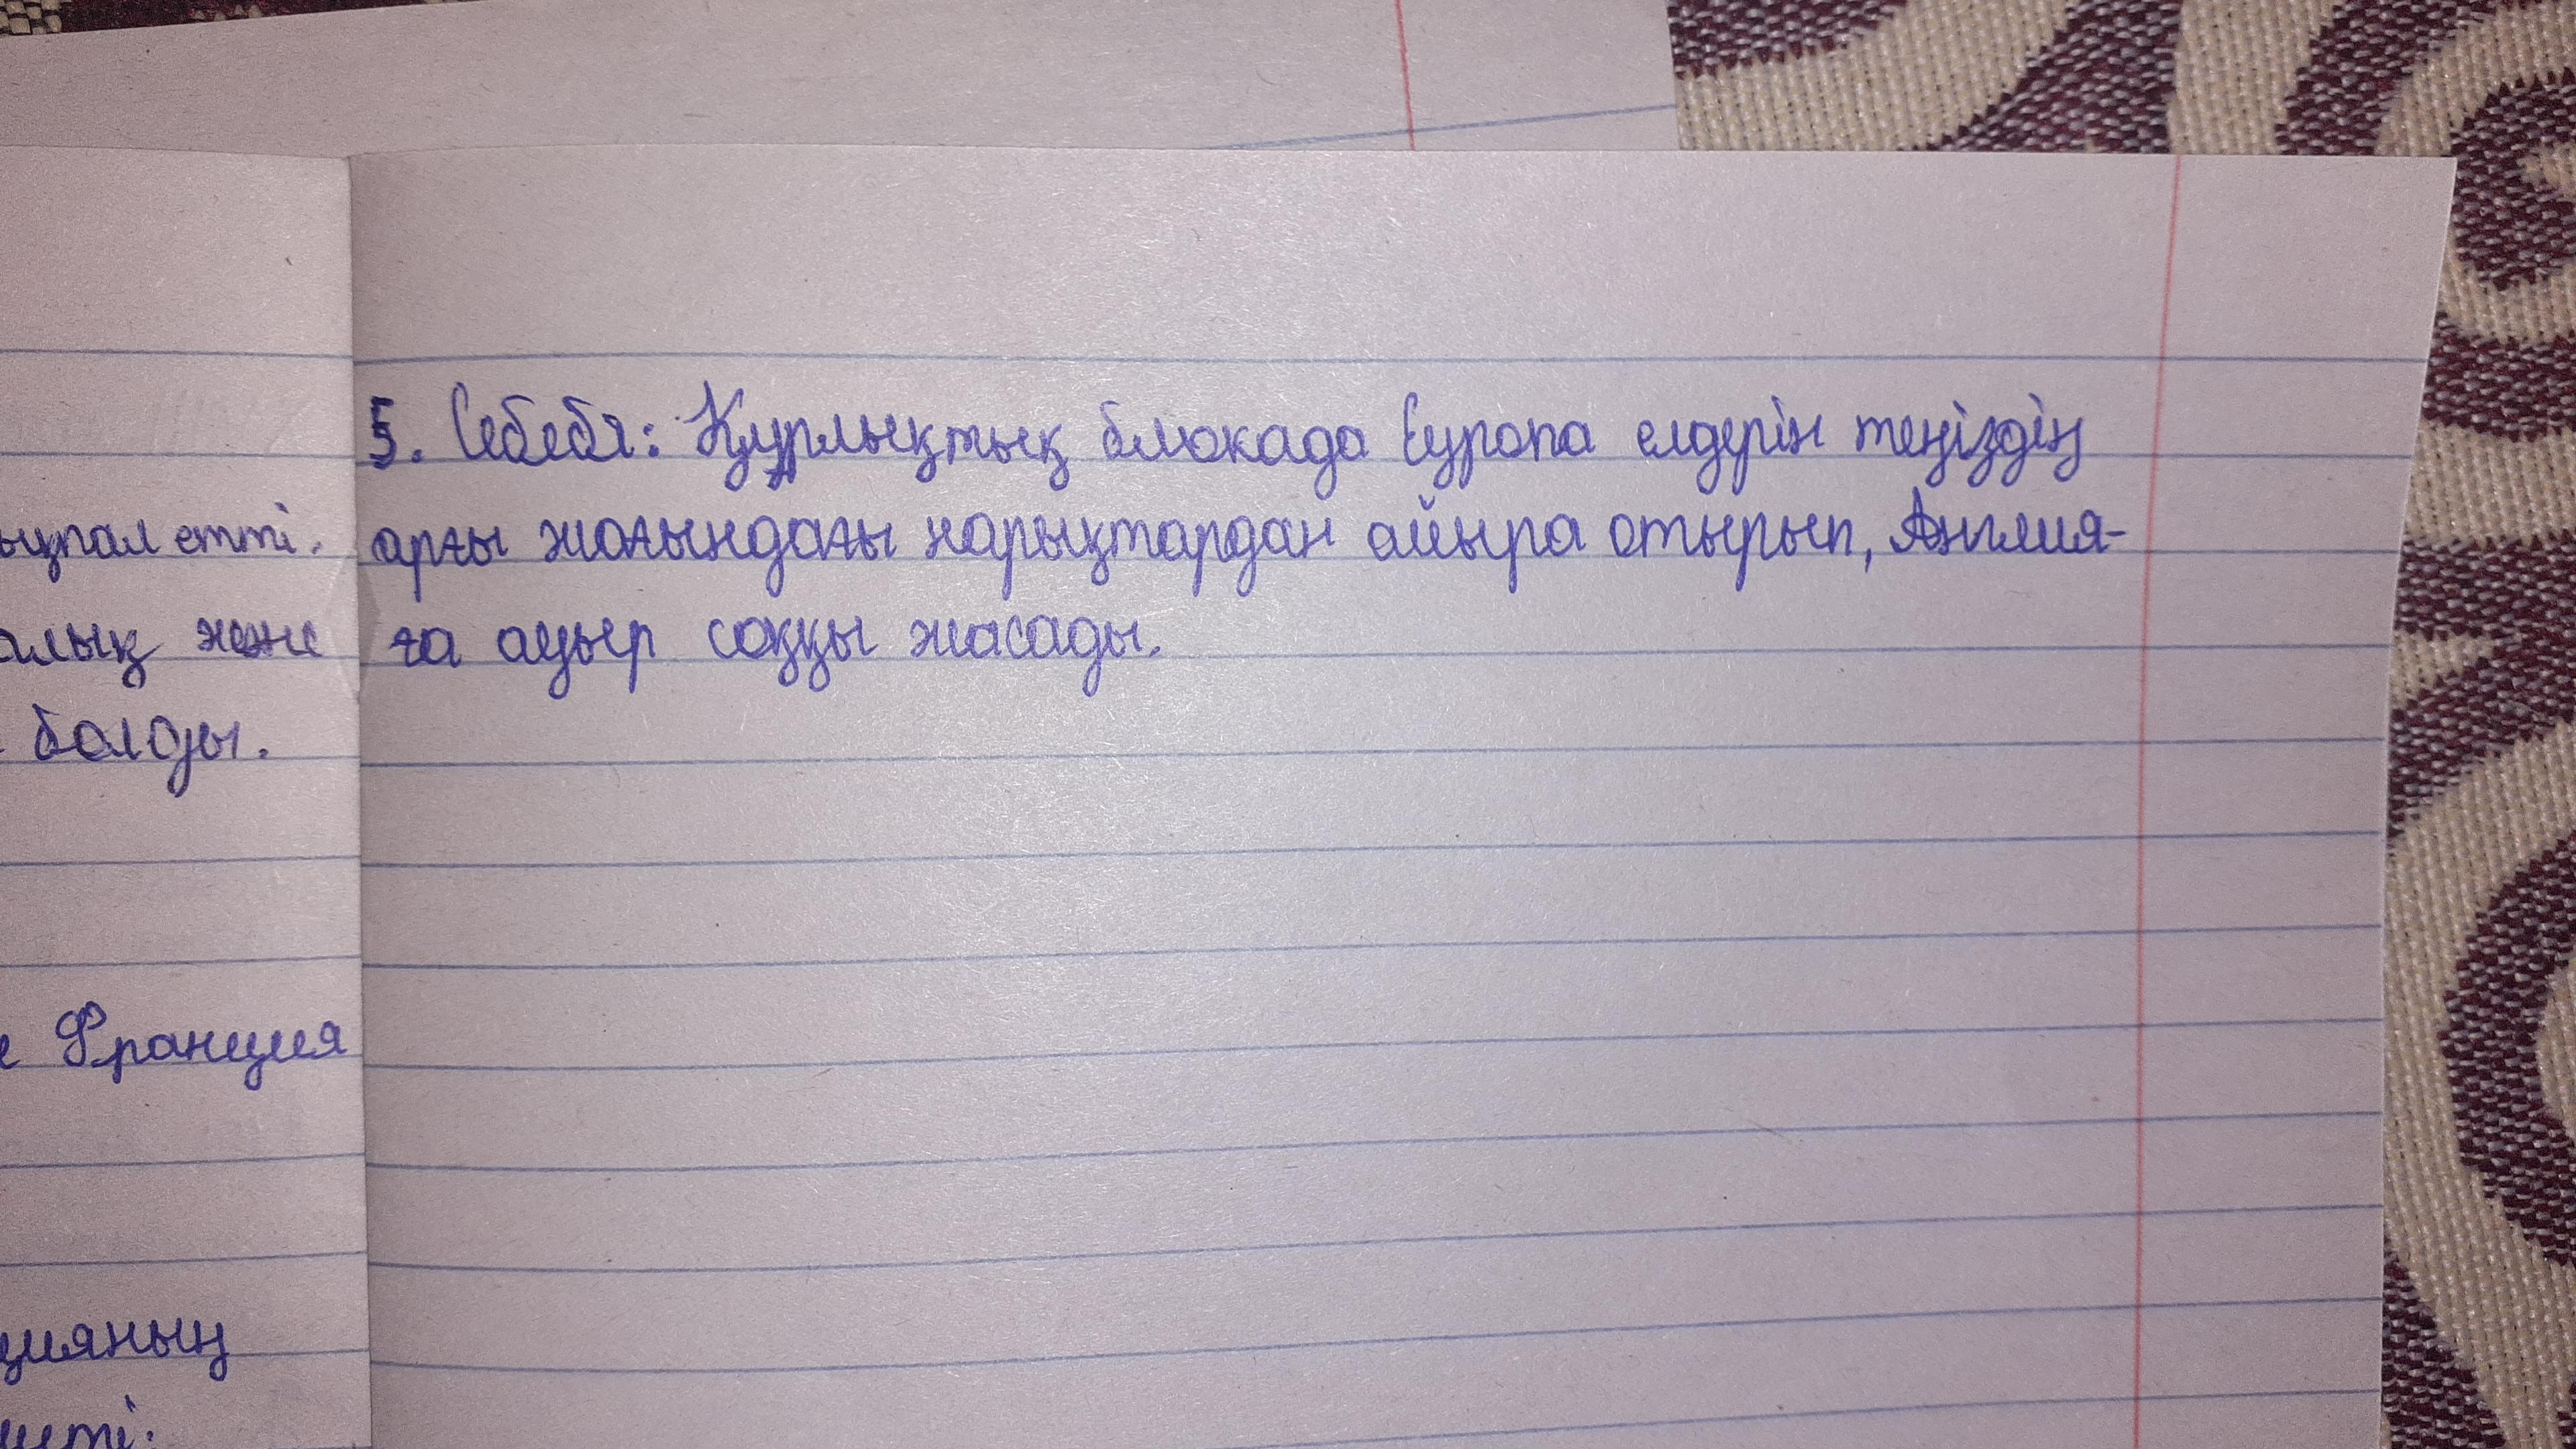 ықпал етті.
алық және
болды.
Франция
цияның
5. Себебі: Құрлықтық блокада Еуропа елдерін теңіздің
арғы жағындағы нарықтардан айыра отырып, Англия-
ға ауыр соққы жасады.